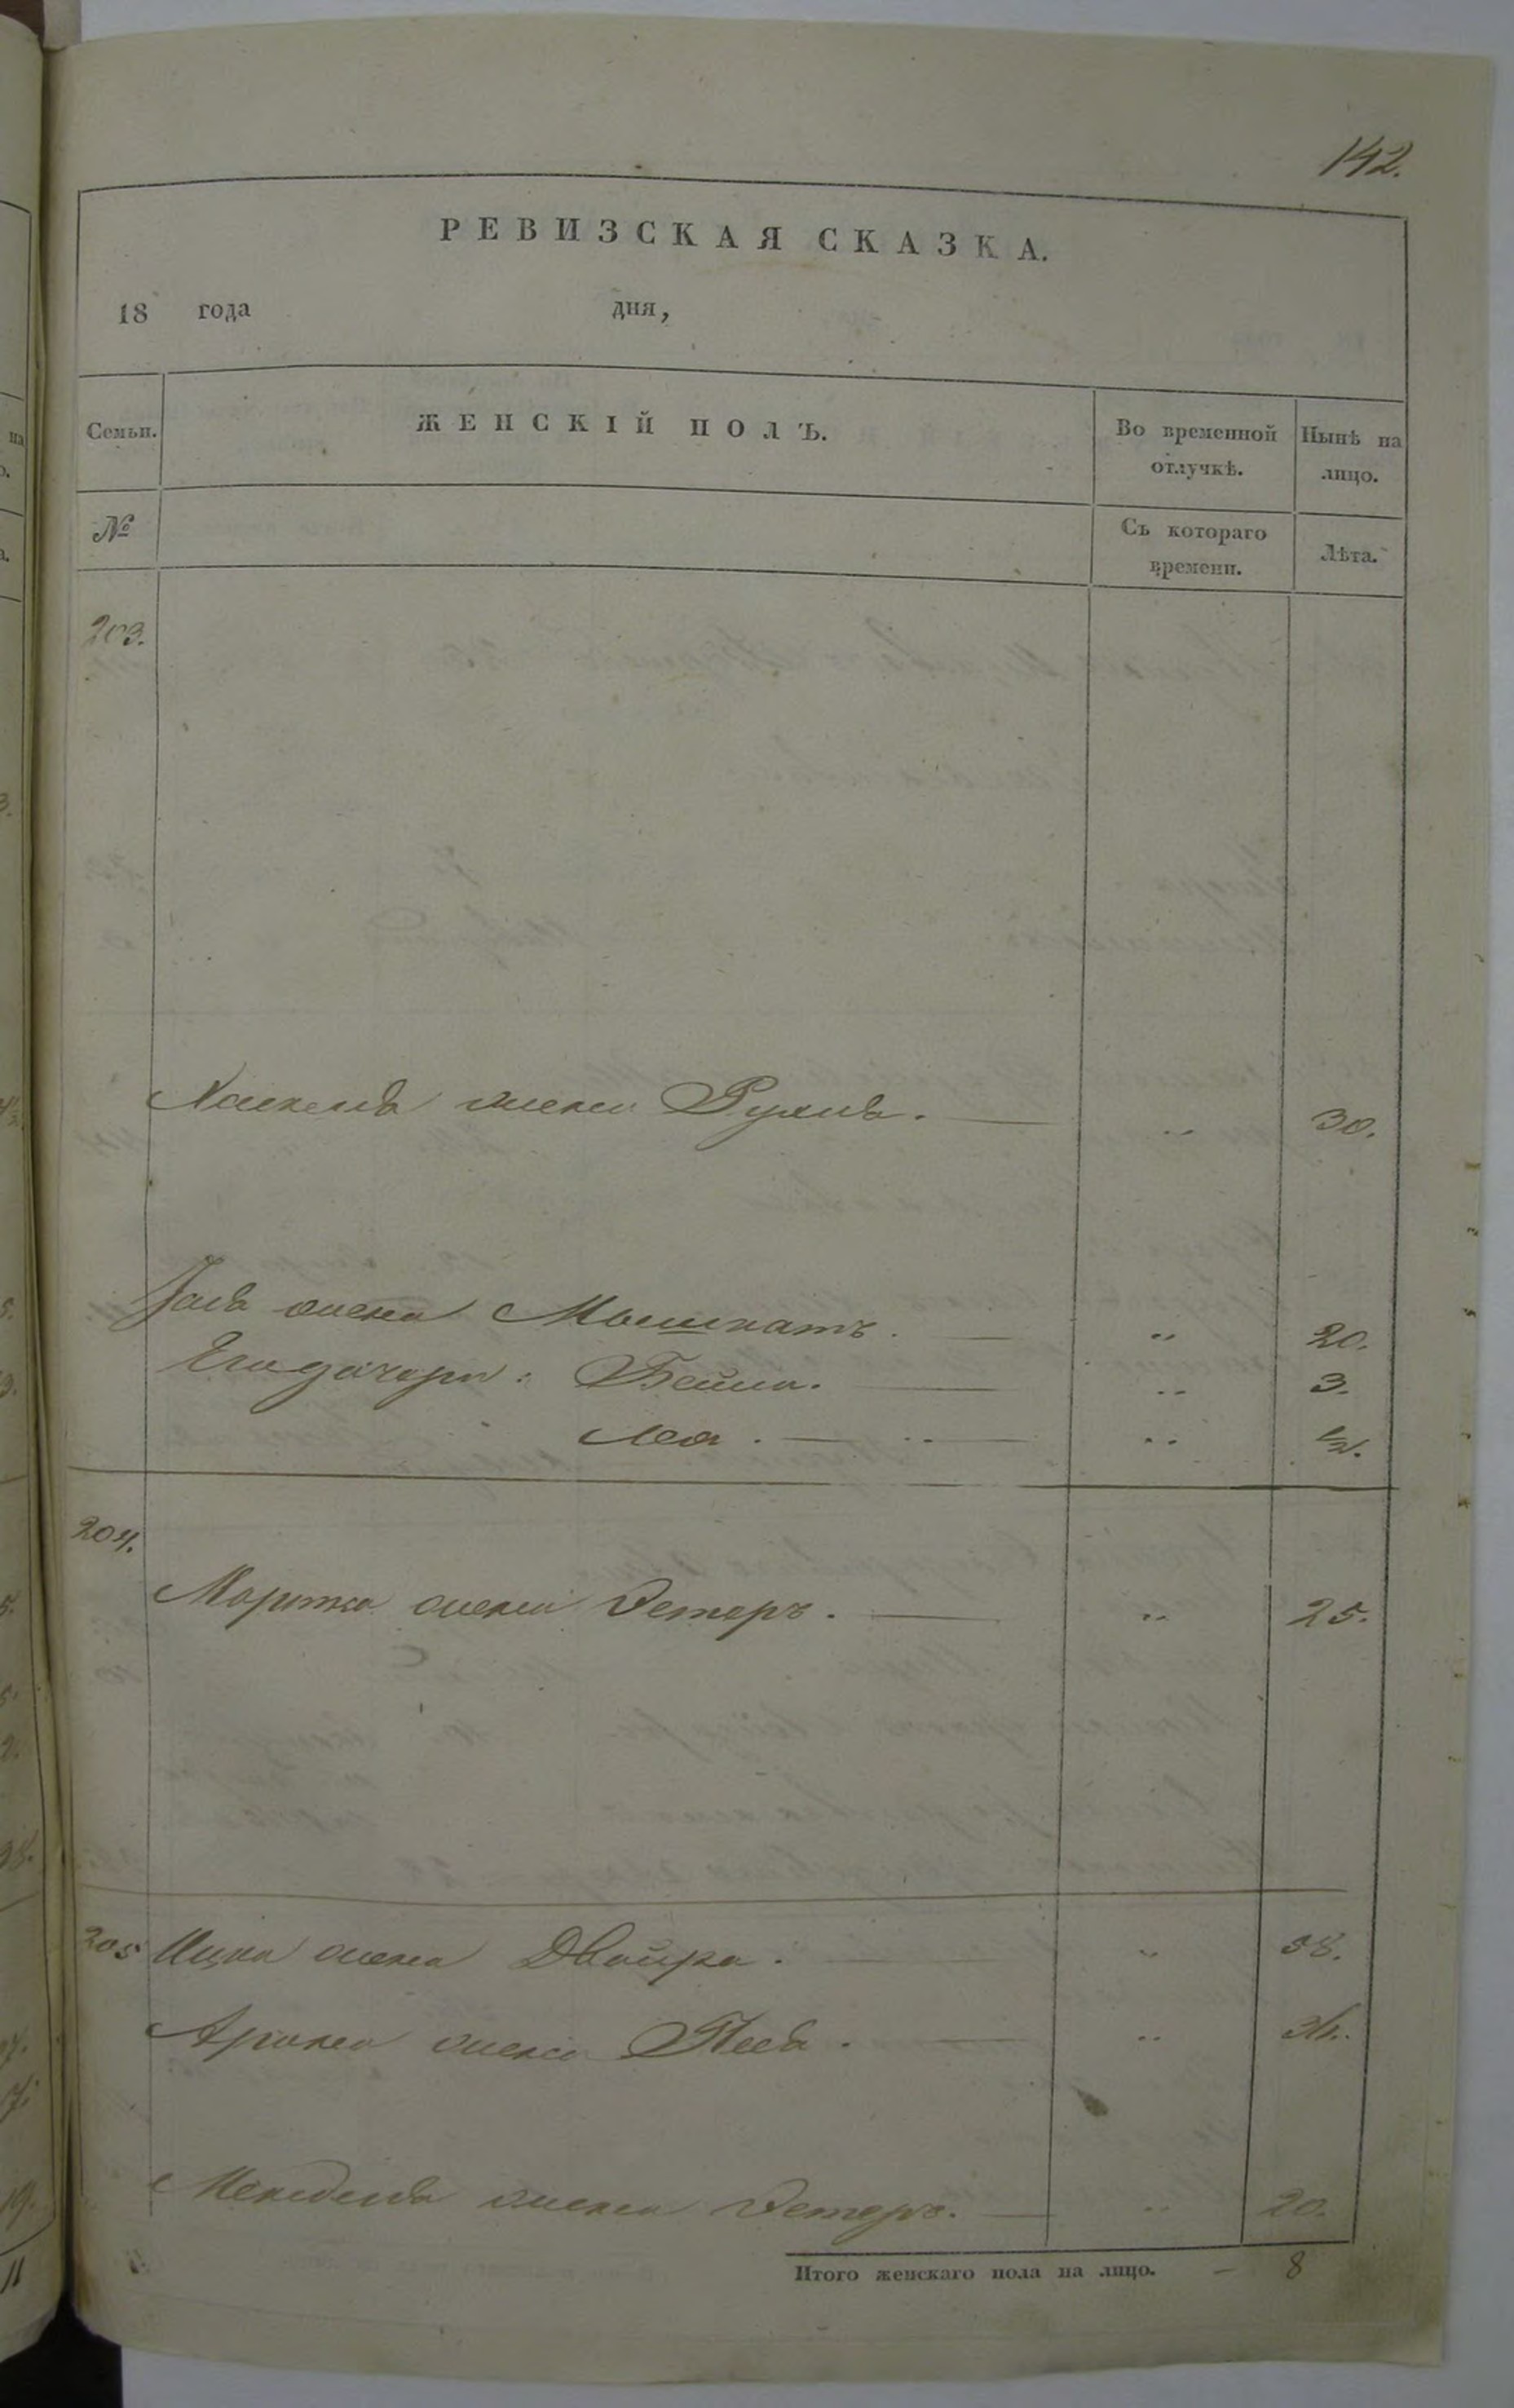 142.
РЕВИЗСКАЯ СКАЗКА.
18 года дня,
Семьи. ЖЕНСКІЙ ПОЛЪ. Во временной отлучкѣ. Нынѣ на лицо.
№ Съ котораго времени. Лѣта.
203.
жена „ 30.
жена „ 20.
Его дочери: Бейла. „ 3.
Леа. „ 1/2.
204.
жена Эстеръ. „ 25.
205 Ицки жена Двойра. „ 58.
Арона жена Песя. „
Менделя жена Эстеръ. „ 20.
Итого женскаго пола на лицо. – 8